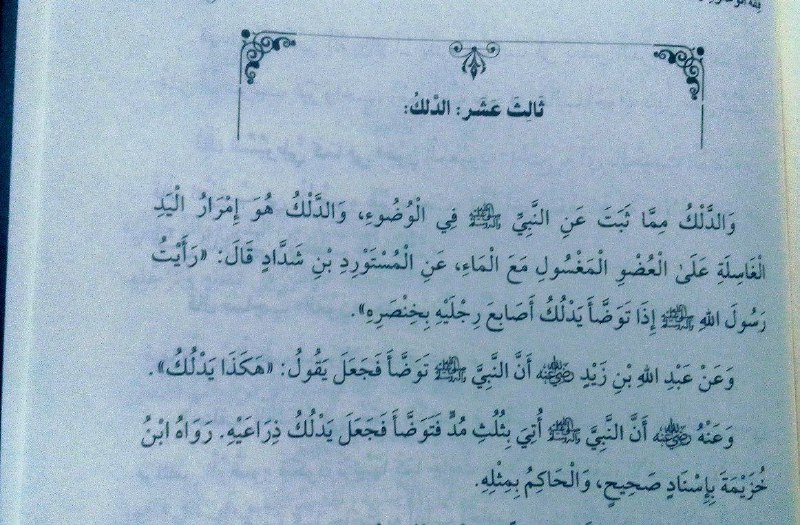 ثَالِثَ عَشَر: الدَّلكُ:
وَالدَّلْكُ مِمَّا ثَبَتَ عَنِ النَّبِيِّ ﷺ فِي الْوُضُوءِ، وَالدَّلْكُ هُوَ إِمْرَارُ الْيَدِ
الْغَاسِلَةِ عَلَىٰ الْعُضْوِ الْمَغْسُولِ مَعَ الْمَاءِ، عَنِ الْمُسْتَوْرِدِ بْنِ شَدَّادٍ قَالَ: «رَأَيْتُ
رَسُولَ اللهِ ﷺ إِذَا تَوَضَّأَ يَدْلُكُ أَصَابِعَ رِجْلَيْهِ بِخِنْصَرِهِ».
وَعَنْ عَبْدِ اللهِ بْنِ زَيْدٍ رَضِيَ اللهُ عَنْهُ أَنَّ النَّبِيَّ ﷺ تَوَضَّأَ فَجَعَلَ يَقُولُ: «هَكَذَا يَدْلُكُ».
وَعَنْهُ رَضِيَ اللهُ عَنْهُ أَنَّ النَّبِيَّ ﷺ أُتِيَ بِثُلُثِ مُدٍّ فَتَوَضَّأَ فَجَعَلَ يَدْلُكُ ذِرَاعَيْهِ. رَوَاهُ ابْنُ
خُزَيْمَةَ بِإِسْنَادٍ صَحِيحٍ، وَالْحَاكِمُ بِمِثْلِهِ.